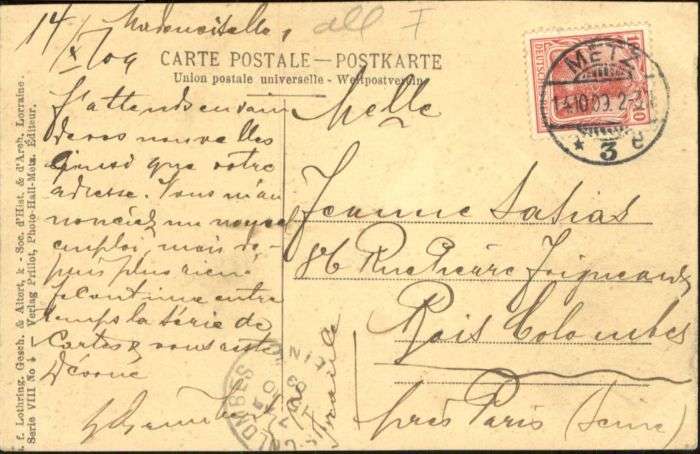 14/X 09 Mademoiselle,
all F
CARTE POSTALE — POSTKARTE
Union postale universelle - Weltpostverein
J'attends en vain
de vos nouvelles
ainsi que votre
adresse. Vous m'an
nonciez un nouvel
emploi, mais de-
puis plus rien
Je continue entre
temps la série de
cartes & vous reste
dévoué
Melle
Jeanne
86 Rue Pierre Joigneaux
Bois Colombes
près Paris (Seine)
DEUTSCHES
10
METZ 1
14.10.09. 2-3
* 3 d
COLOMBES
SEINE
f. Lothring. Gesch. & Altert. k - Soc. d'Hist. & d'Arch. Lorraine.
Serie VIII No Verlag Prillot, Photo-Hall-Metz. Éditeur.